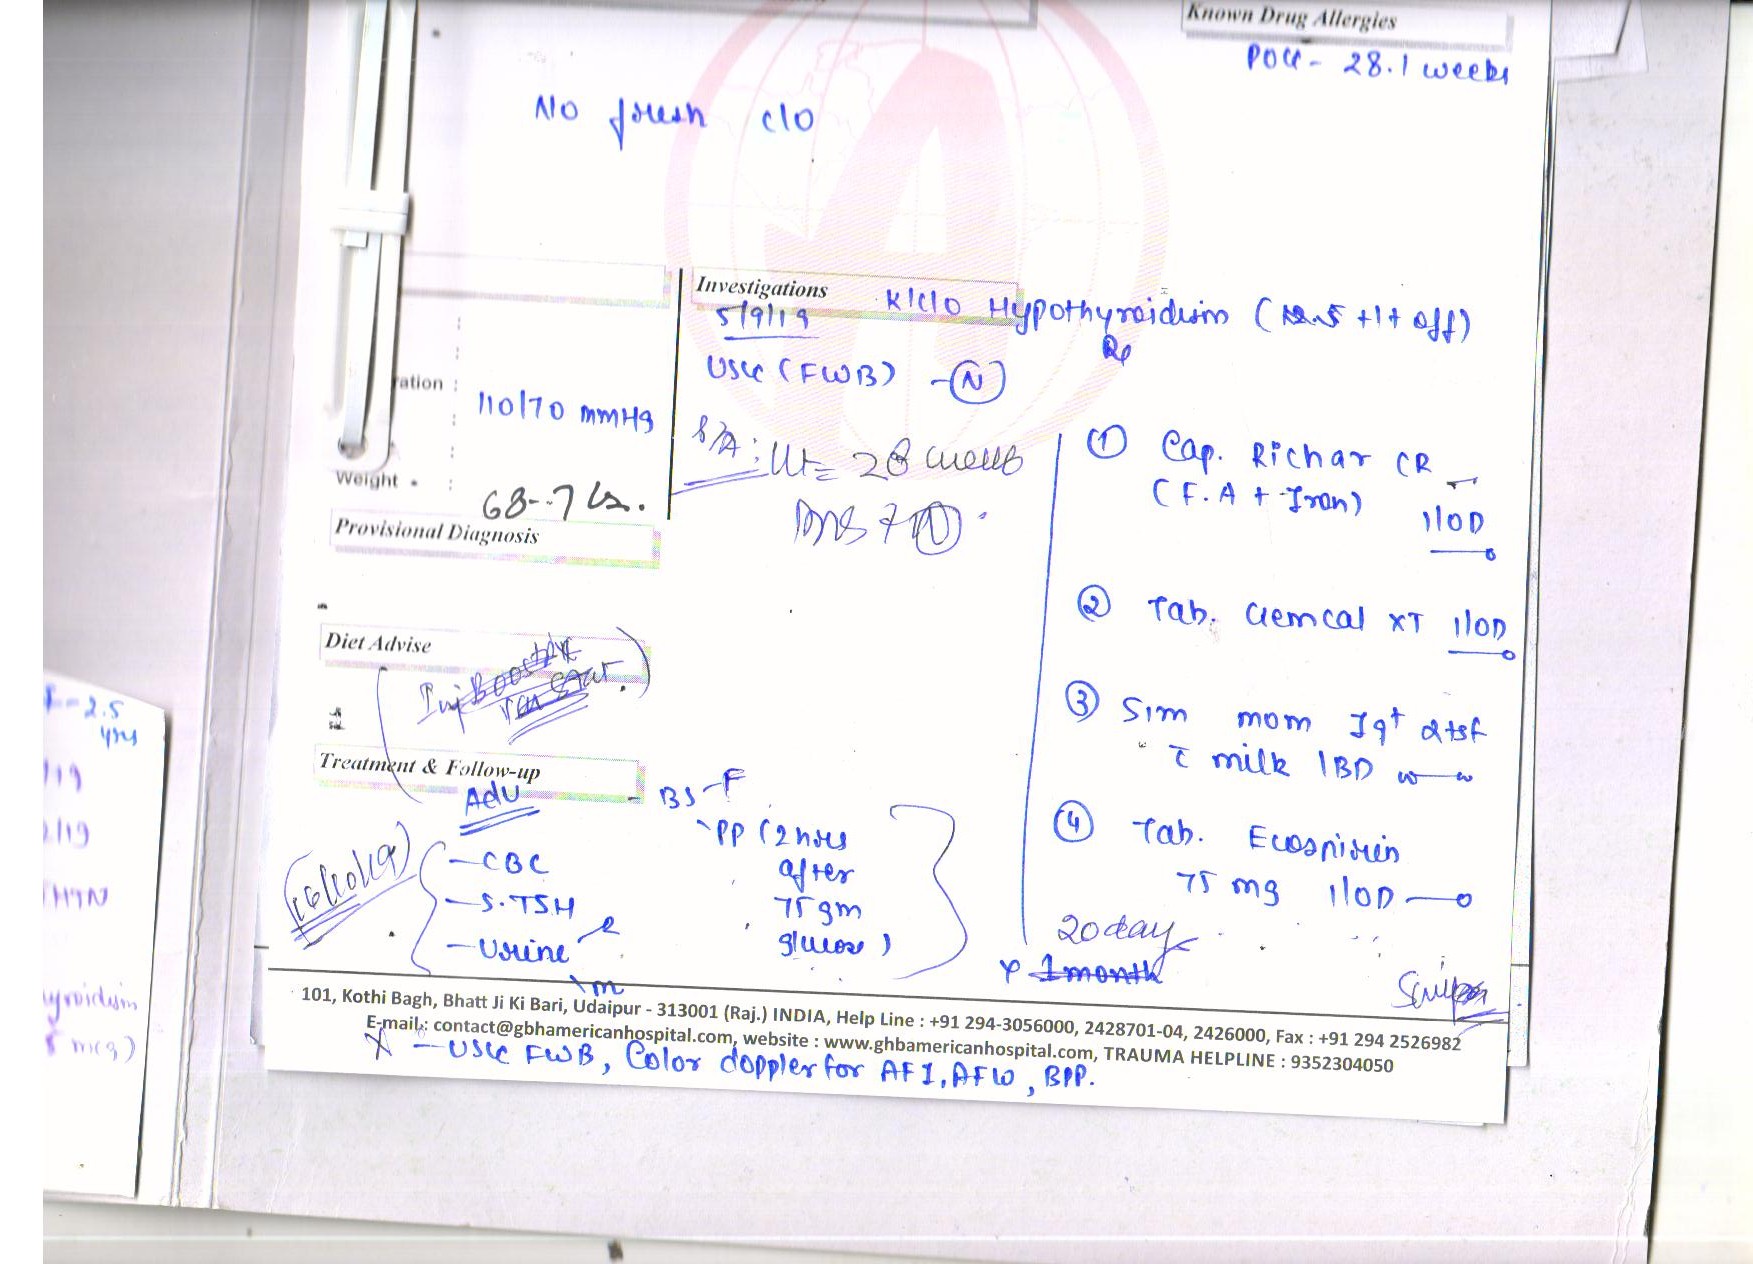 Known Drug Allergies
POG - 28.1 weeks
No fresh c/o
Investigations
K/C/O Hypothyroidism ( + 1 + off)
5/9/19
Rp
USG (FWB) - N
ation :
110/70 mmHg
P/A : Ut = 28 weeks
Weight :
68.7
Provisional Diagnosis
① Cap. Richar CR
(F.A + Iron)
1 OD
② Tab. Gemcal XT 1 OD
Diet Advise
Inj
stat.
③ Sim mom 2tsf
c milk 1BD
Treatment & Follow-up
Adv
- BS - F
PP (2 hrs
after
75 gm
glucose)
16/10/19
- CBC
- S.TSH
- Urine
m
④ Tab. Ecospirin
75 mg 1 OD
20 day
1 month
101, Kothi Bagh, Bhatt Ji Ki Bari, Udaipur - 313001 (Raj.) INDIA, Help Line : +91 294-3056000, 2428701-04, 2426000, Fax : +91 294 2526982
E-mail : contact@gbhamericanhospital.com, website : www.ghbamericanhospital.com, TRAUMA HELPLINE : 9352304050
- USG FWB, Color doppler for AFI, AFW, BPP.
- 2.5
yrs
/19
2/19
yroidism
5 mcg)